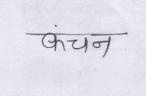 कंचन